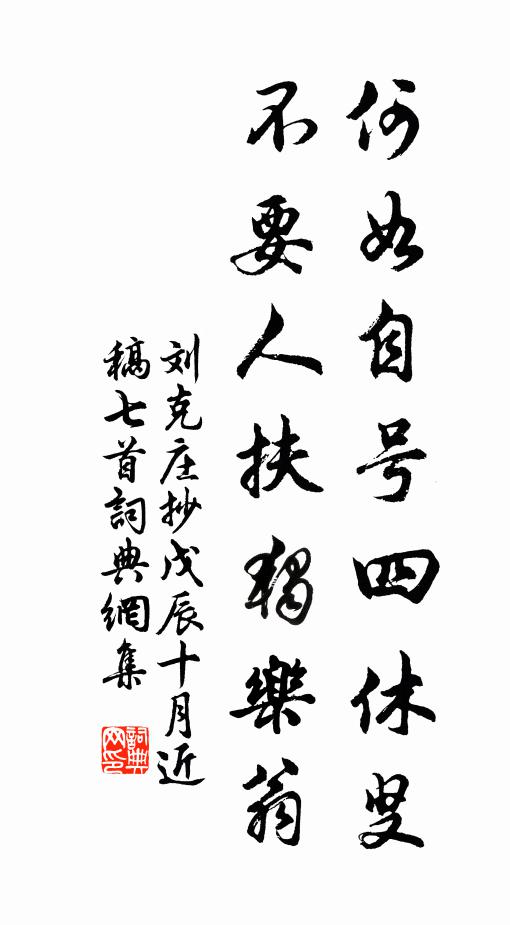 何如自号四休叟
不要人扶独樂翁
刘克庄抄戊辰十月近
稿七首詞典網集
詞典
网印